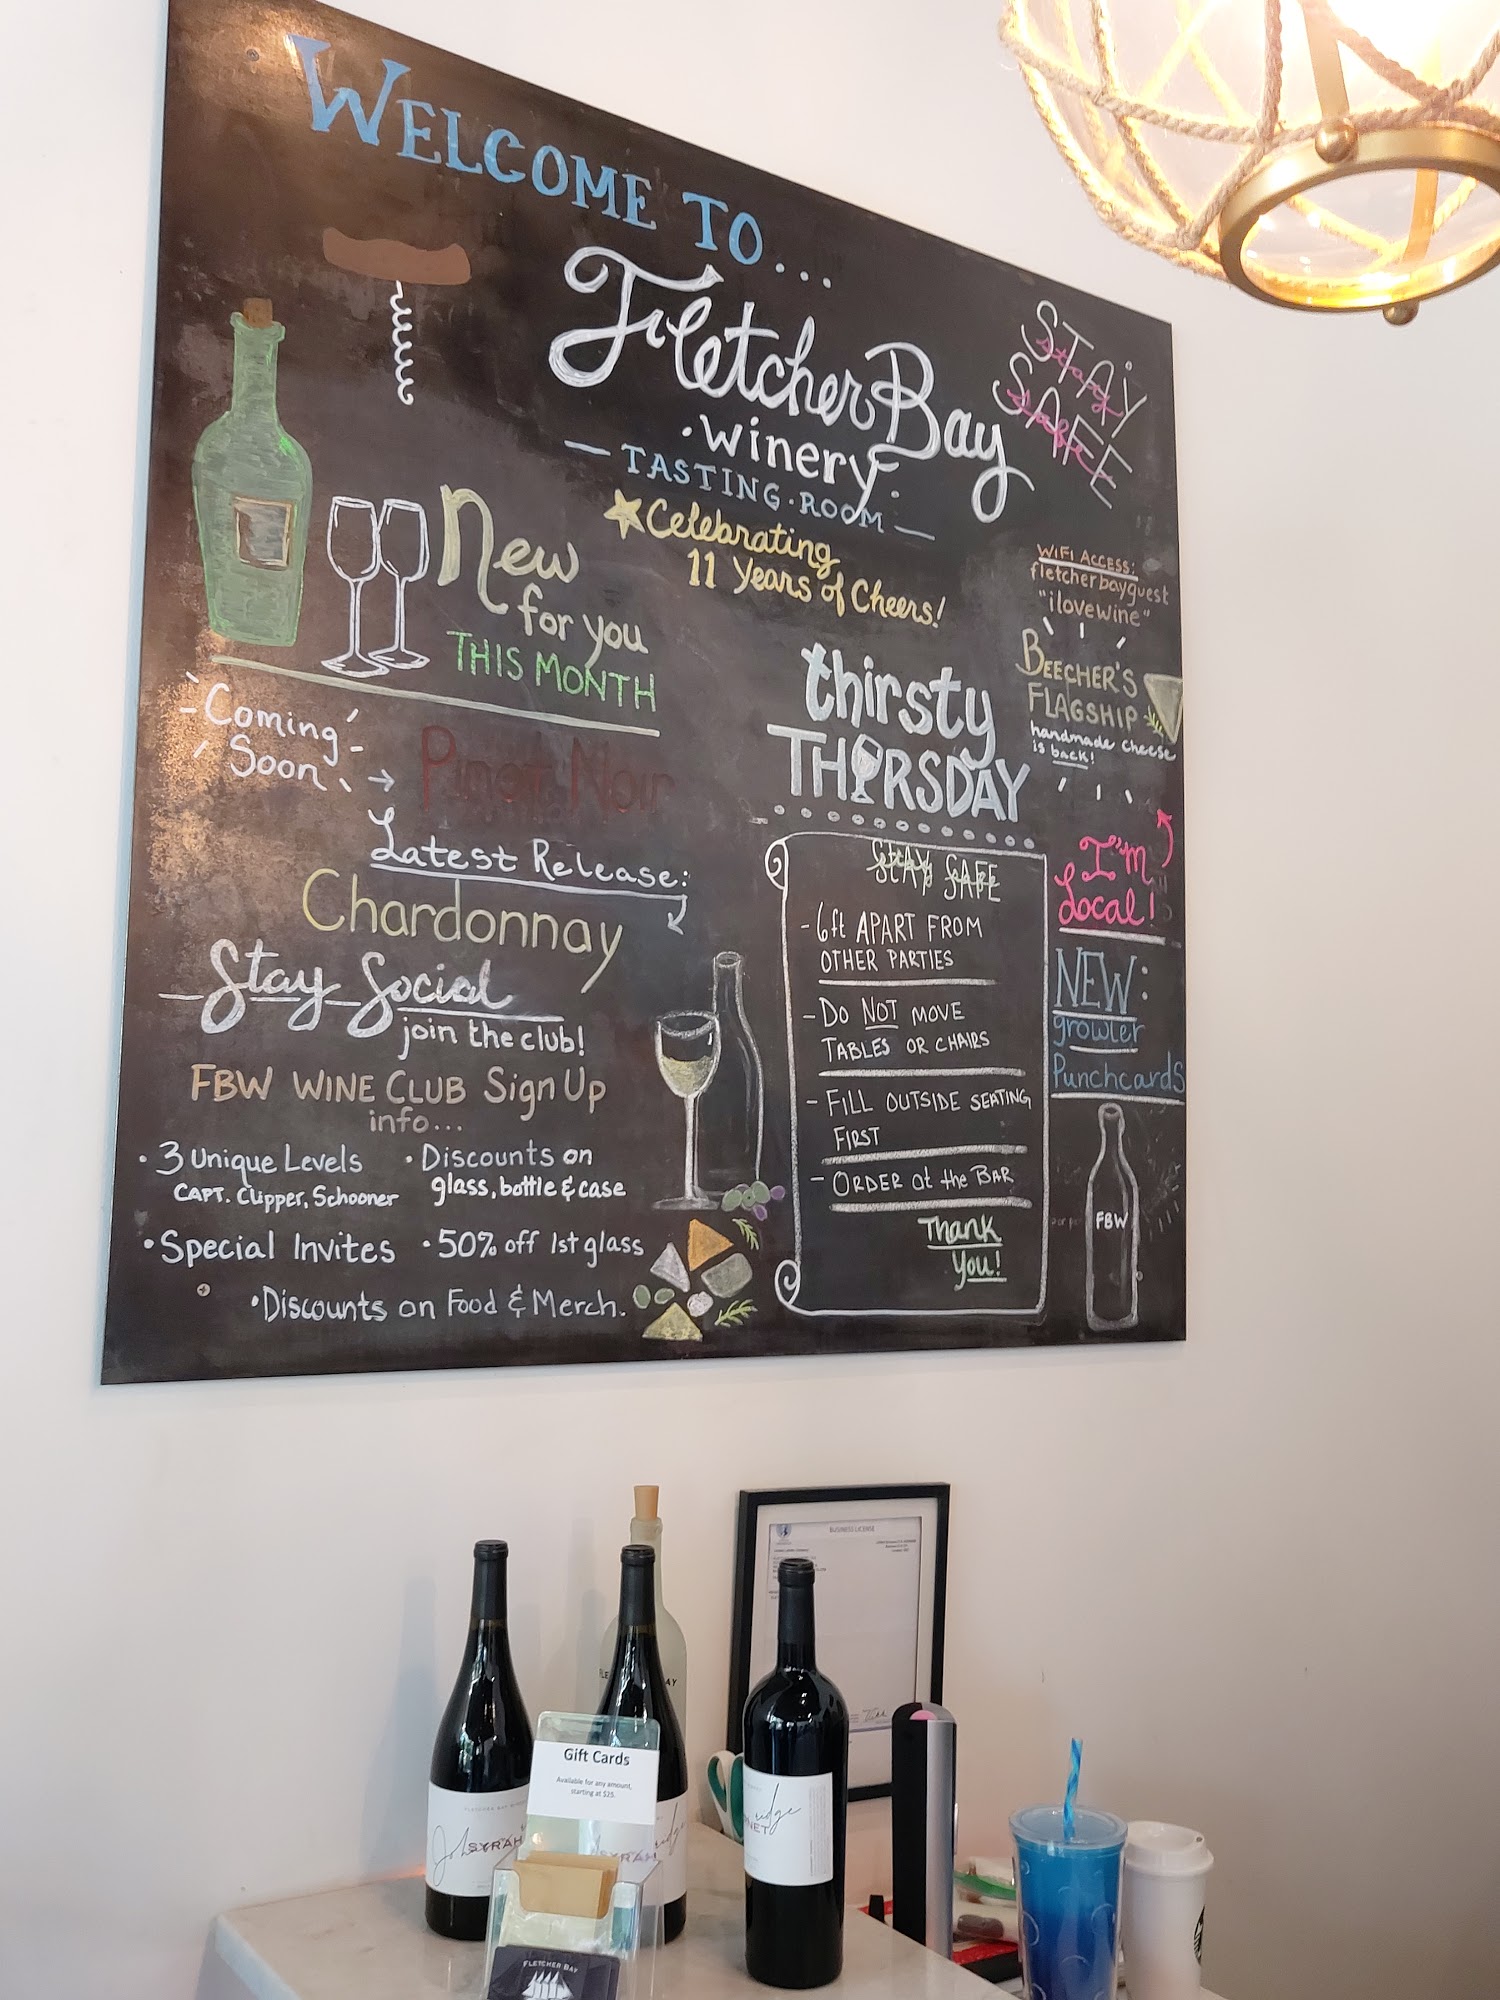 WELCOME TO...
Fletcher Bay
·Winery·
— TASTING·ROOM —
Celebrating
11 Years of Cheers!
STAY
SAFE
New
for you
THIS MONTH
Coming
Soon
Pinot Noir
Latest Release:
Chardonnay
Stay Social
join the club!
FBW WINE CLUB Sign Up
info...
· 3 Unique Levels
CAPT. Clipper, Schooner
· Discounts on
glass, bottle & case
· Special Invites
· 50% off 1st glass
· Discounts on Food & Merch.
thirsty
THURSDAY
STAY SAFE
- 6ft APART FROM
OTHER PARTIES
- DO NOT MOVE
TABLES OR CHAIRS
- FILL OUTSIDE SEATING
FIRST
- ORDER at the BAR
Thank
You!
WIFI ACCESS:
fletcherbayguest
"ilovewine"
BEECHER'S
FLAGSHIP
handmade cheese
is back!
I'm
Local!
NEW:
growler
Punchcards
FBW
BUSINESS LICENSE
Gift Cards
Available for any amount,
starting at $25.
FLETCHER BAY
SYRAH
SYRAH
FLETCHER BAY